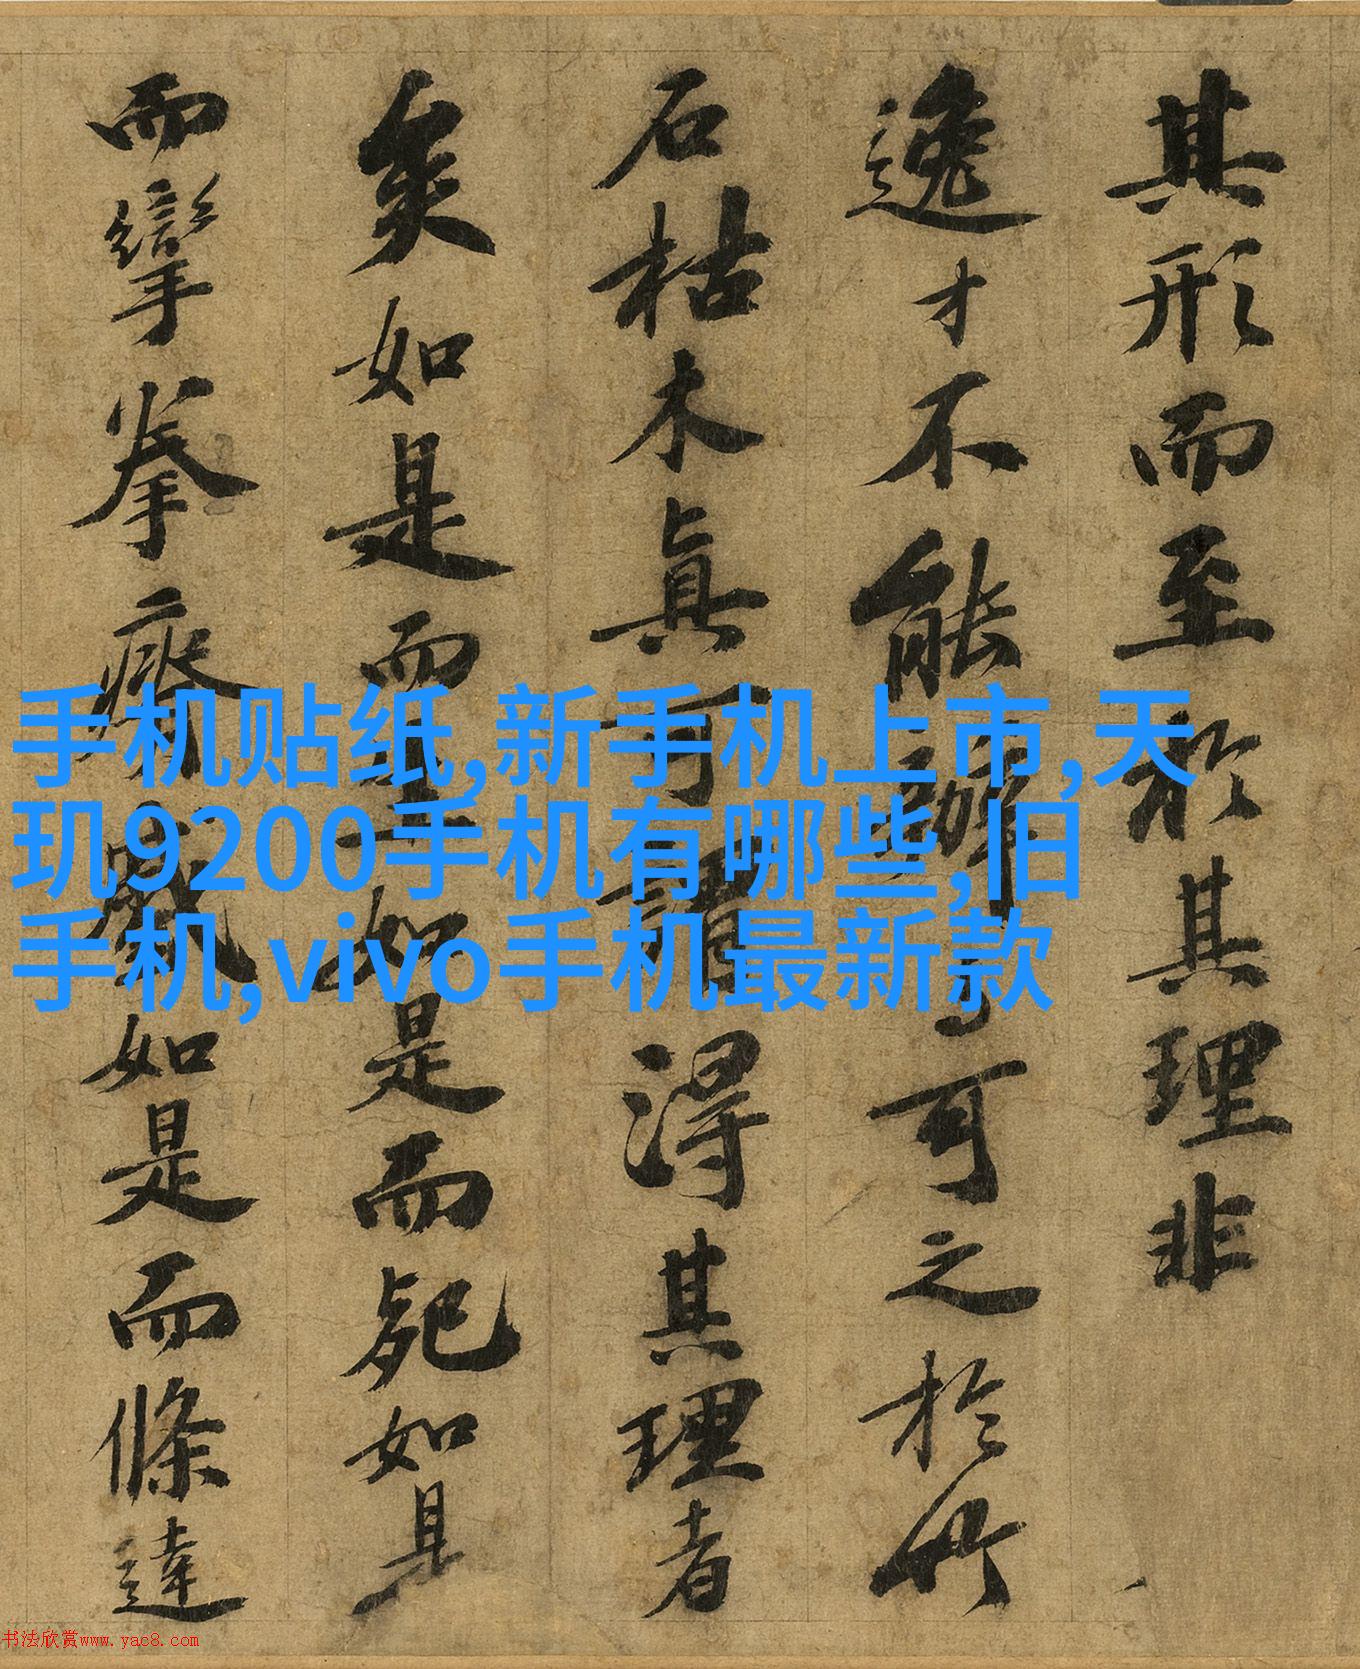 其形而至於其理非
逸才不能辦与可之於竹
石枯木真可謂得其理者
矣如是而生如是而死如是
而攣拳瘠蹙如是而條達
手机贴纸,新手机上市,天
玑9200手机有哪些,旧
手机,vivo手机最新款
书法欣赏www.yac8.com